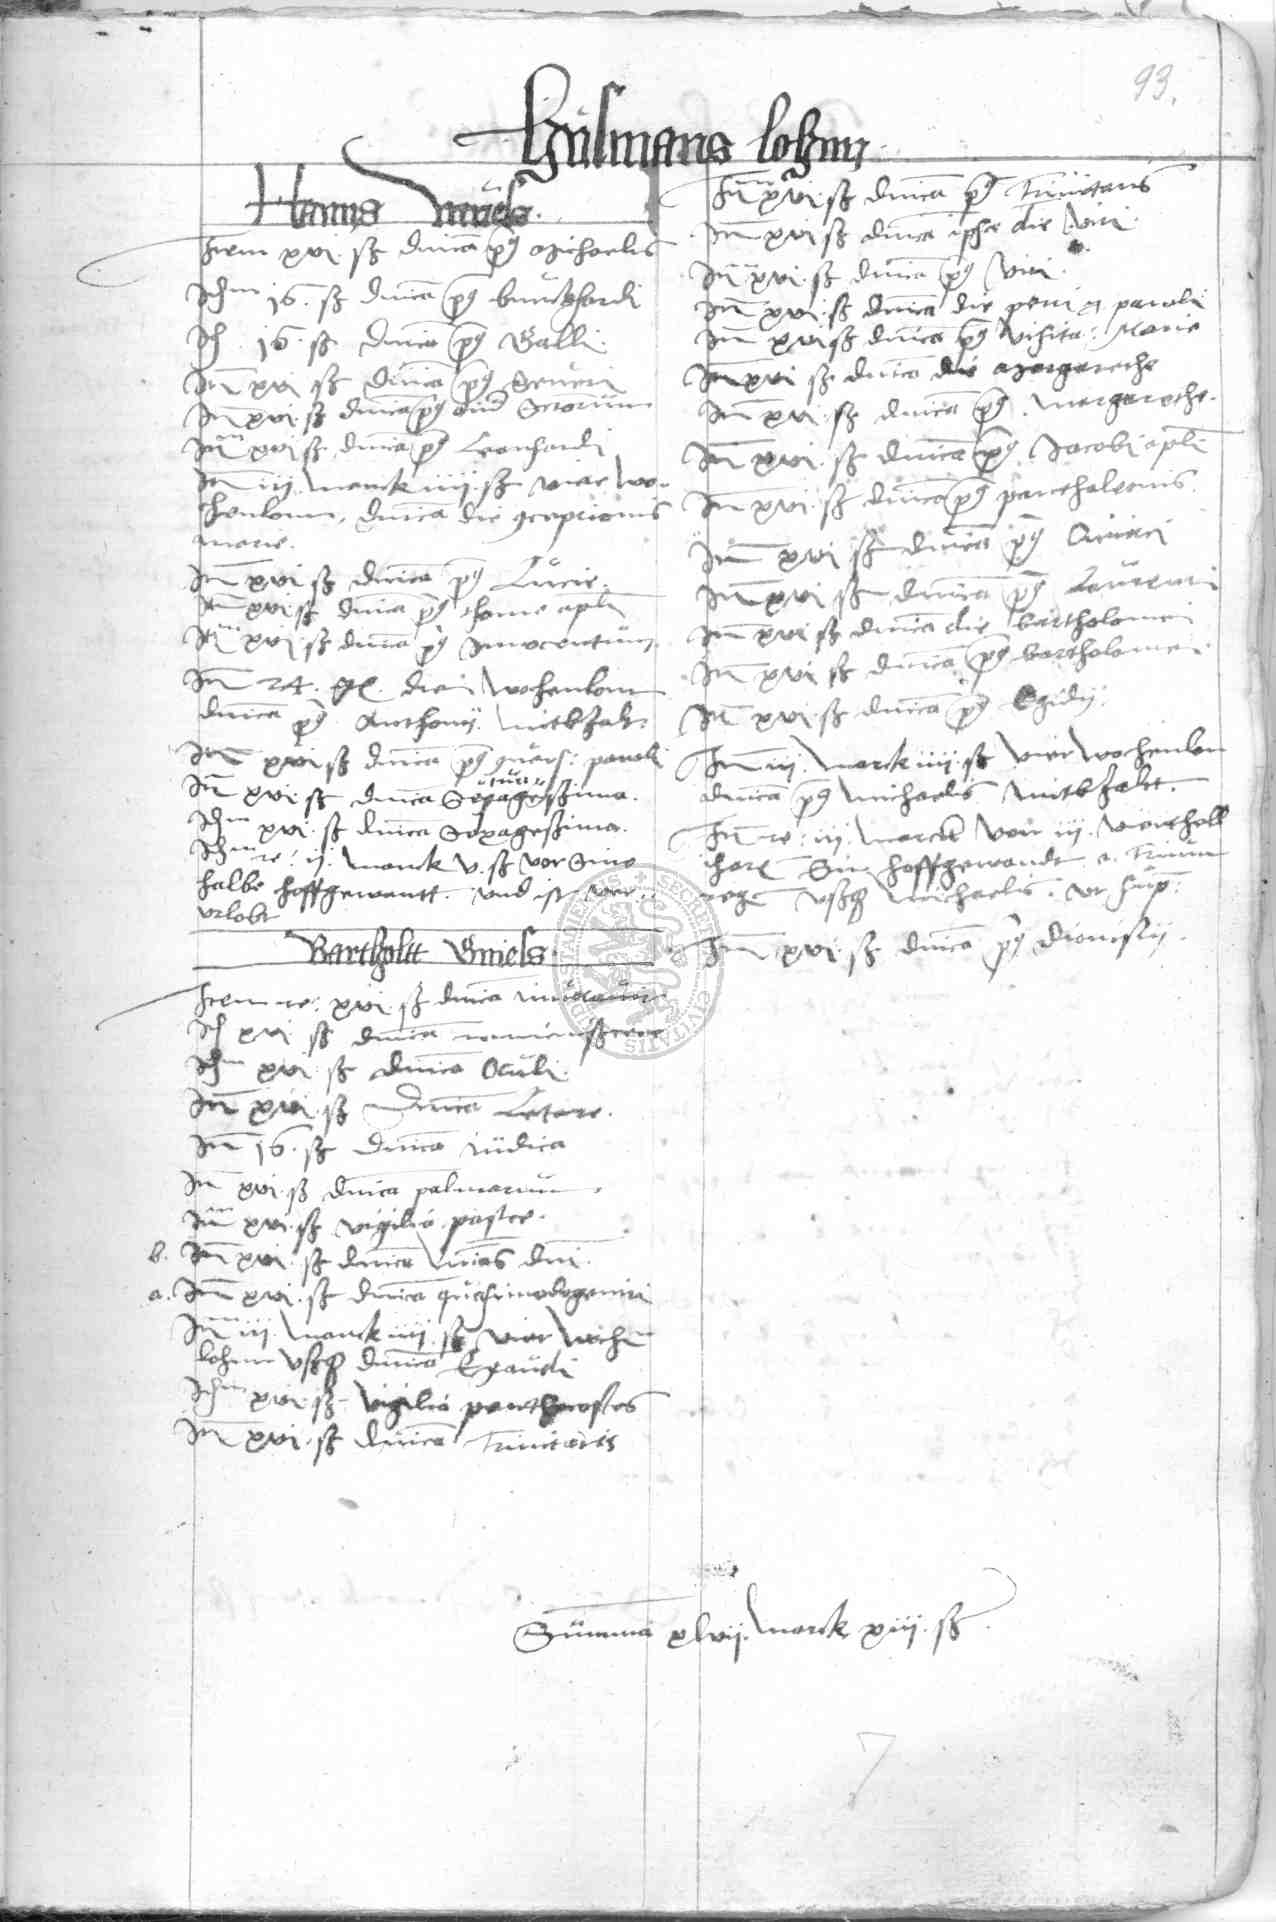 93.
Hanns
Item xvi sz dnica pg Michaelis
Itm 16 sz dnica pg burchardi
It 16 sz dnica pg Galli
Itm xvi sz dnica pg Severi
Itm xvi sz dnica pg oium Sctorum
Itm xvi sz dnica pg Leonhardi
Itm iij marck iiij sz vier wo-
chenlonn, dnica die gceptionis
marie
Itm xvi sz dnica pg Lucie
Itm xvi sz dnica pg thome apli
Itm xvi sz dnica pg Innocentium
Itm 24 gr. drei wochenlonn
dnica pg Anthonij
Itm xvi sz dnica pg gvers: pauli
Itm xvi sz dnica
Itm xvi sz dnica Sexagesima
Itm re: ij marck v sz vor sine
halbe hoffgewantt und ist ver-
urlobt
Bartholtt
Item re: xvi sz dnica Invocavit
It xvi sz dnica reminiscere
Itm xvi sz dnica Oculi
Itm xvi sz dnica Letare
Itm 16 sz dnica iudica
Itm xvi sz dnica palmarum
Itm xvi sz vigilia pasce
b. Itm xvi sz dnica mias dni
a. Itm xvi sz dnica quasimodogeniti
Itm iij marck iiij sz vier wochn
lohnn dnica Exaudi
Itm xvi sz vigilia penthecostes
Itm xvi sz dnica Trinitatis
Itm xvi sz dnica pg Trinitatis
Itm xvi sz dnica ipse die Viti
Itm xvi sz dnica pg Viti
Itm xvi sz dnica die petri et pauli
Itm xvi sz dnica pg visita: Marie
Itm xvi sz dnica die Margarethe
Itm xvi sz dnica pg margarethe
Itm xvi sz dnica pg Jacobi apli
Itm xvi sz dnica pg panthaleonis
Itm xvi sz dnica pg Ciriaci
Itm xvi sz dnica pg Laurentii
Itm xvi sz dnica die bartholomei
Itm xvi sz dnica pg bartholomei
Itm xvi sz dnica pg Egidij
Itm iij marck iiij sz vier wochenlon
dnica pg michaelis
Itm re: iij marck vor iij vierthell
hoffgewandt
michaelis
Itm xvi sz dnica pg dionisij
Summa xlvij marck xiij sz